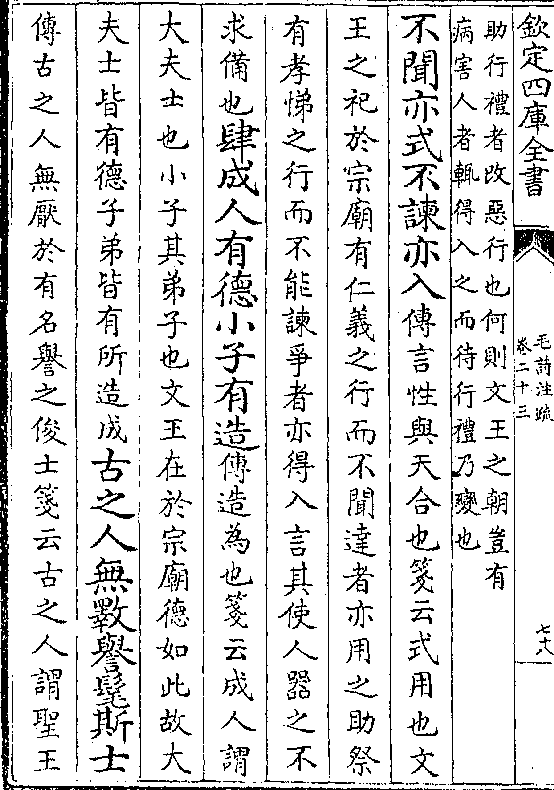 欽定四庫全書
毛詩注疏
卷二十三
七八
助行禮者改惡行也何則文王之朝豈有
病害人者輒得入之而待行禮乃變也
不聞亦式不諫亦入傳言性與天合也箋云式用也文
王之祀於宗廟有仁義之行而不聞達者亦用之助祭
有孝悌之行而不能諫爭者亦得入言其使人器之不
求備也肆成人有德小子有造傳造為也箋云成人謂
大夫士也小子其弟子也文王在於宗廟德如此故大
夫士皆有德子弟皆有所造成古之人無斁譽髦斯士
傳古之人無厭於有名譽之俊士箋云古之人謂聖王